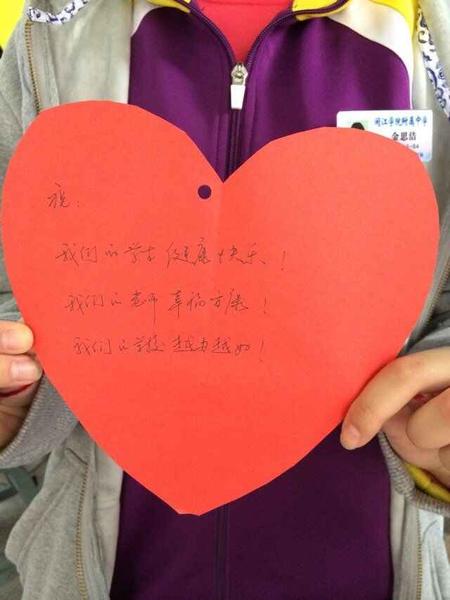 闽江学院附属中学
金思洁
祝:
我们的学生健康快乐!
我们的老师幸福安康!
我们的学校越办越好!